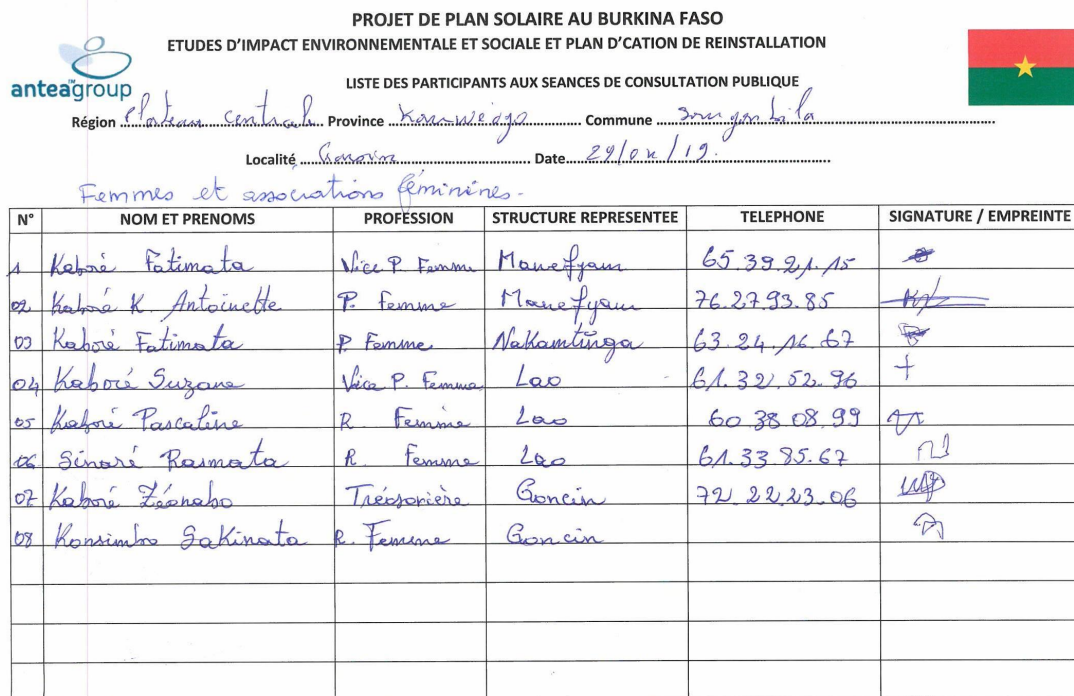 PROJET DE PLAN SOLAIRE AU BURKINA FASO
ETUDES D'IMPACT ENVIRONNEMENTALE ET SOCIALE ET PLAN D'CATION DE REINSTALLATION
anteagroup
LISTE DES PARTICIPANTS AUX SEANCES DE CONSULTATION PUBLIQUE
Région Plateau Central Province Kourwéogo Commune
Localité Date 29/04/19.
Femmes et associations féminines.
N° NOM ET PRENOMS PROFESSION STRUCTURE REPRESENTEE TELEPHONE SIGNATURE / EMPREINTE
1 Kaboré Fatimata Vice P. Femme Manefyam 65.39.21.15
02 Kaboré K. Antoinette P. Femme Manefyam 76.27.93.85
03 Kaboré Fatimata P Femme Nakamtinga 63.24.16.67
04 Kaboré Suzane Vice P. Femme Lao 61.32.52.96 +
05 Kaboré Pascaline R Femme Lao 60 38 08.99
06 Sinaré Rasmata R. Femme Lao 61.33.85.67
07 Kaboré Zéonabo Trésorière Goncin 72.22.23.06
08 Konsimbo Sakinata R. Femme Goncin